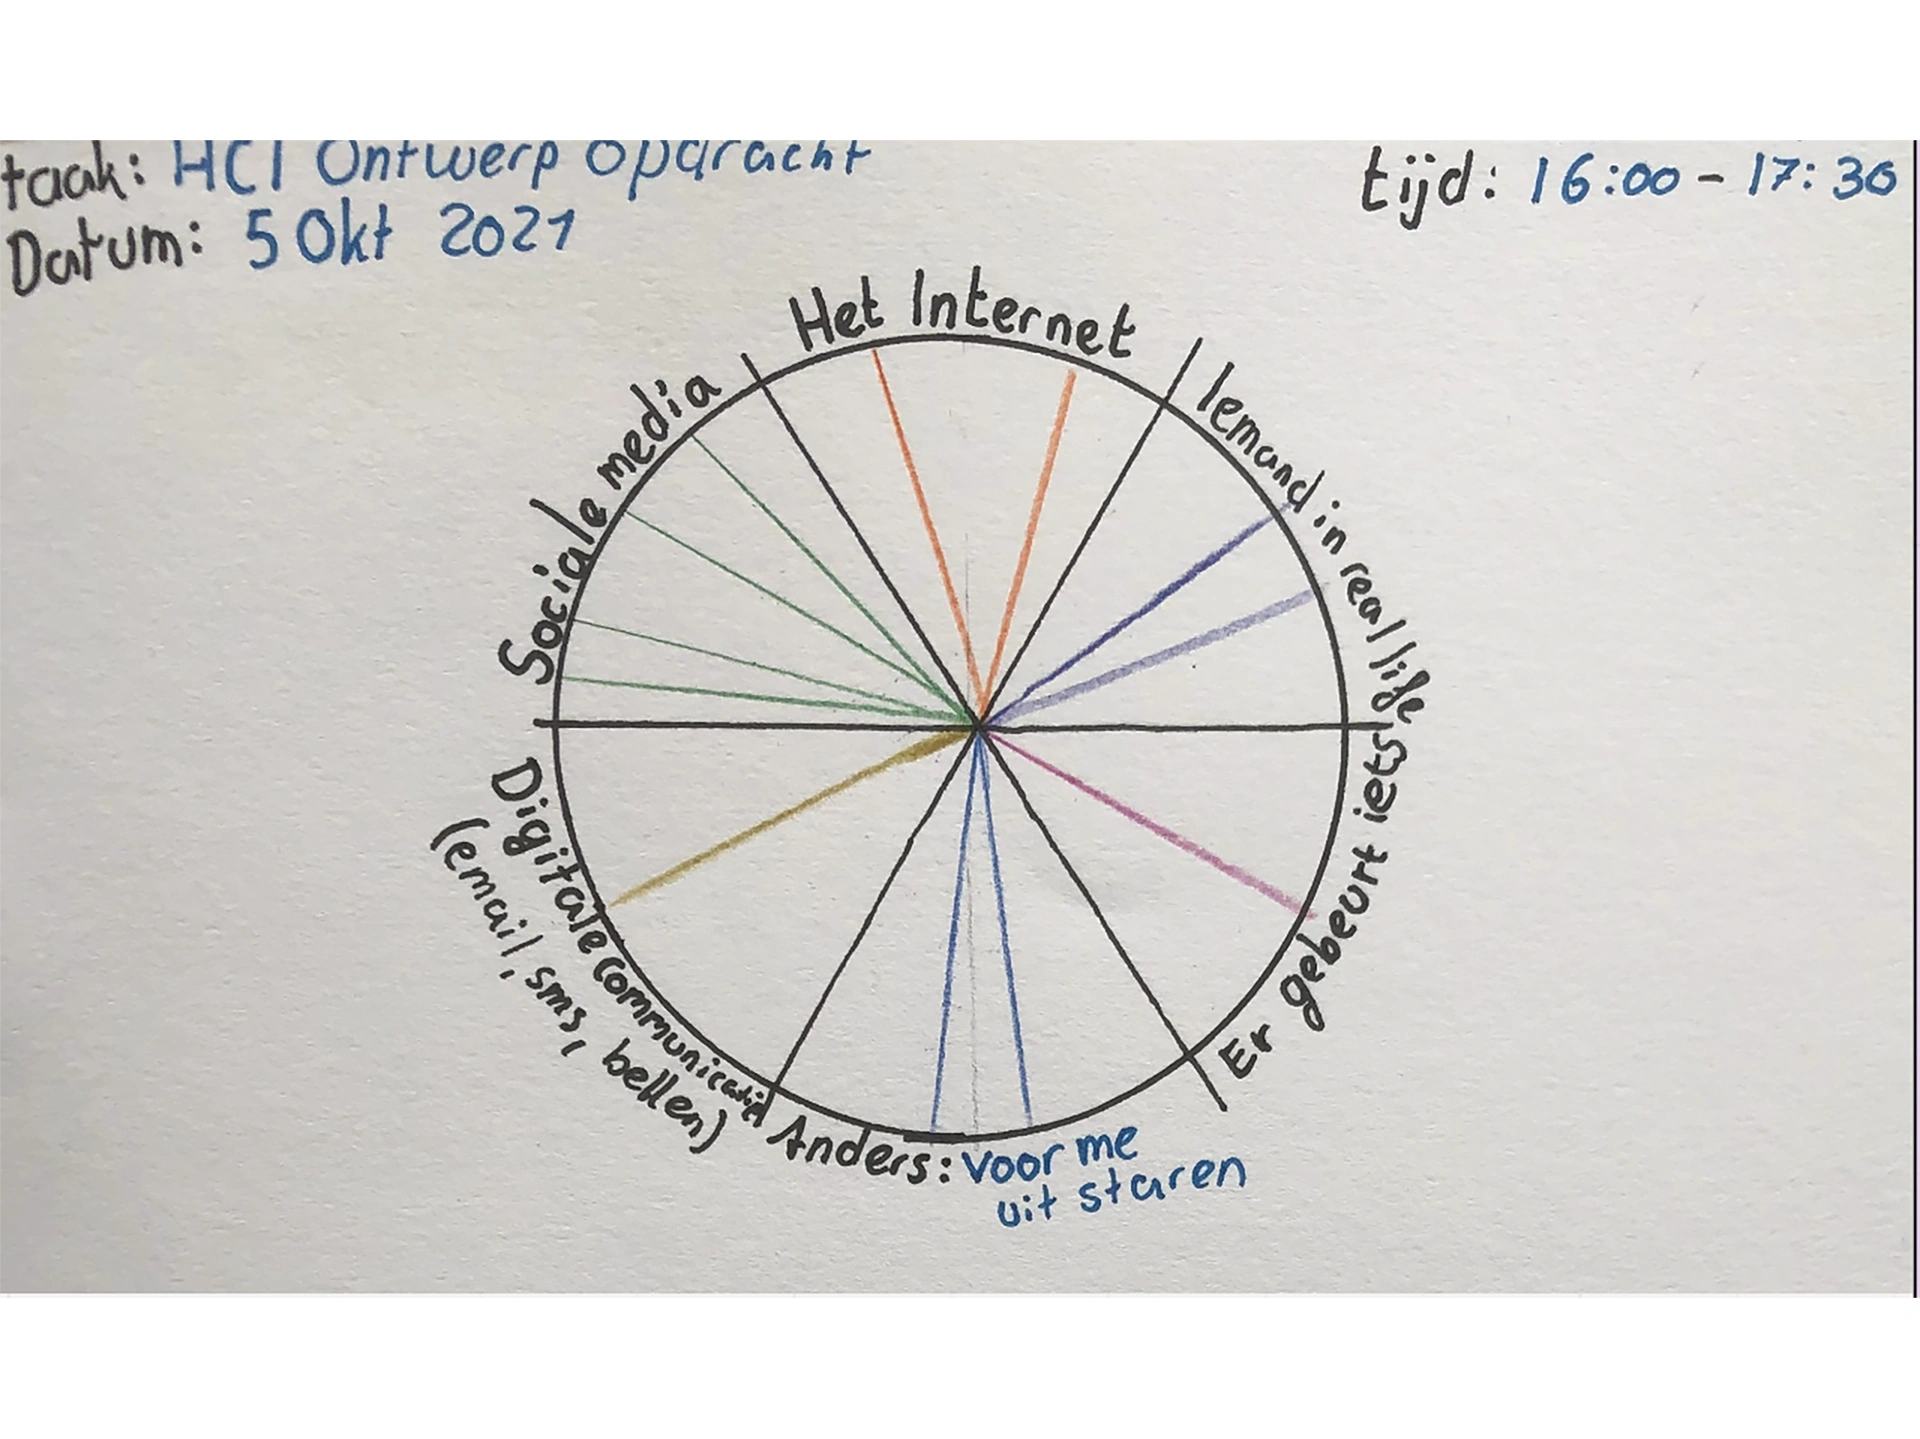 taak: HCI Ontwerp Opdracht
tijd: 16:00 - 17:30
Datum: 5 Okt 2021
Het Internet
Iemand in real life
Er gebeurt iets
Anders: voor me
uit staren
Digitale communicatie
(email, sms, bellen)
Sociale media